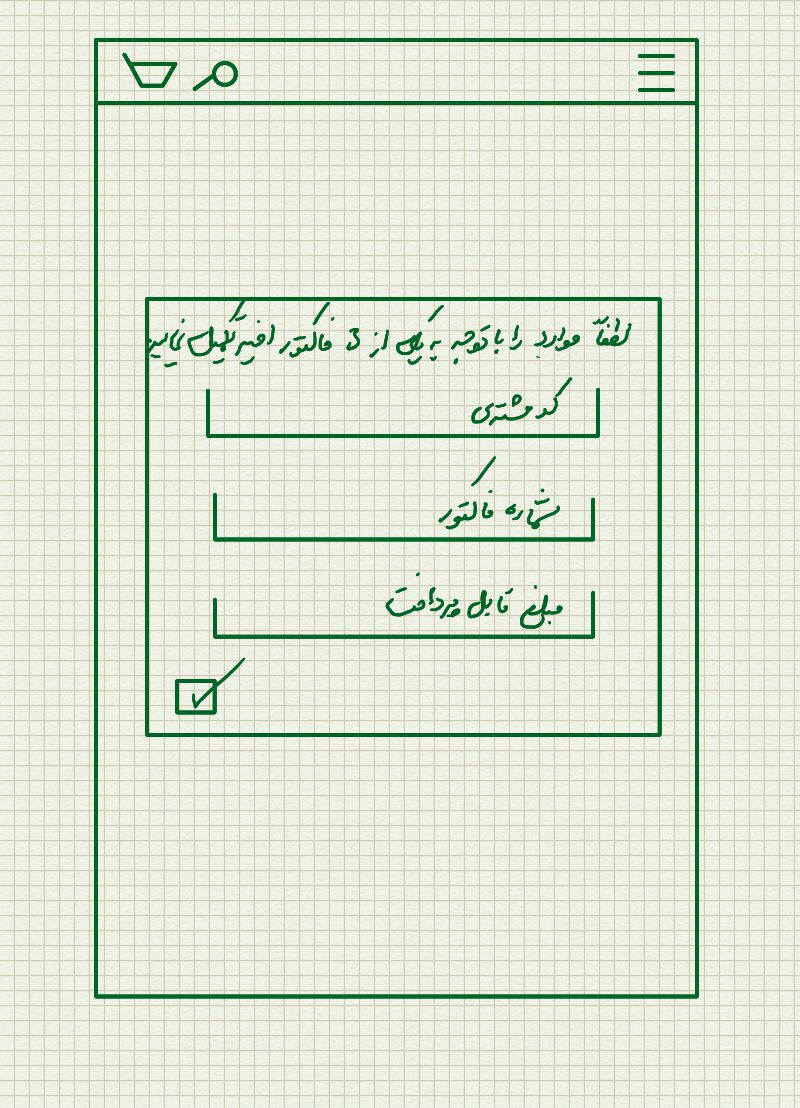 لطفاً موارد را با توجه به یکی از 3 فاکتور اخیر تکمیل نمایید
کد مشتری
شماره فاکتور
مبلغ قابل پرداخت